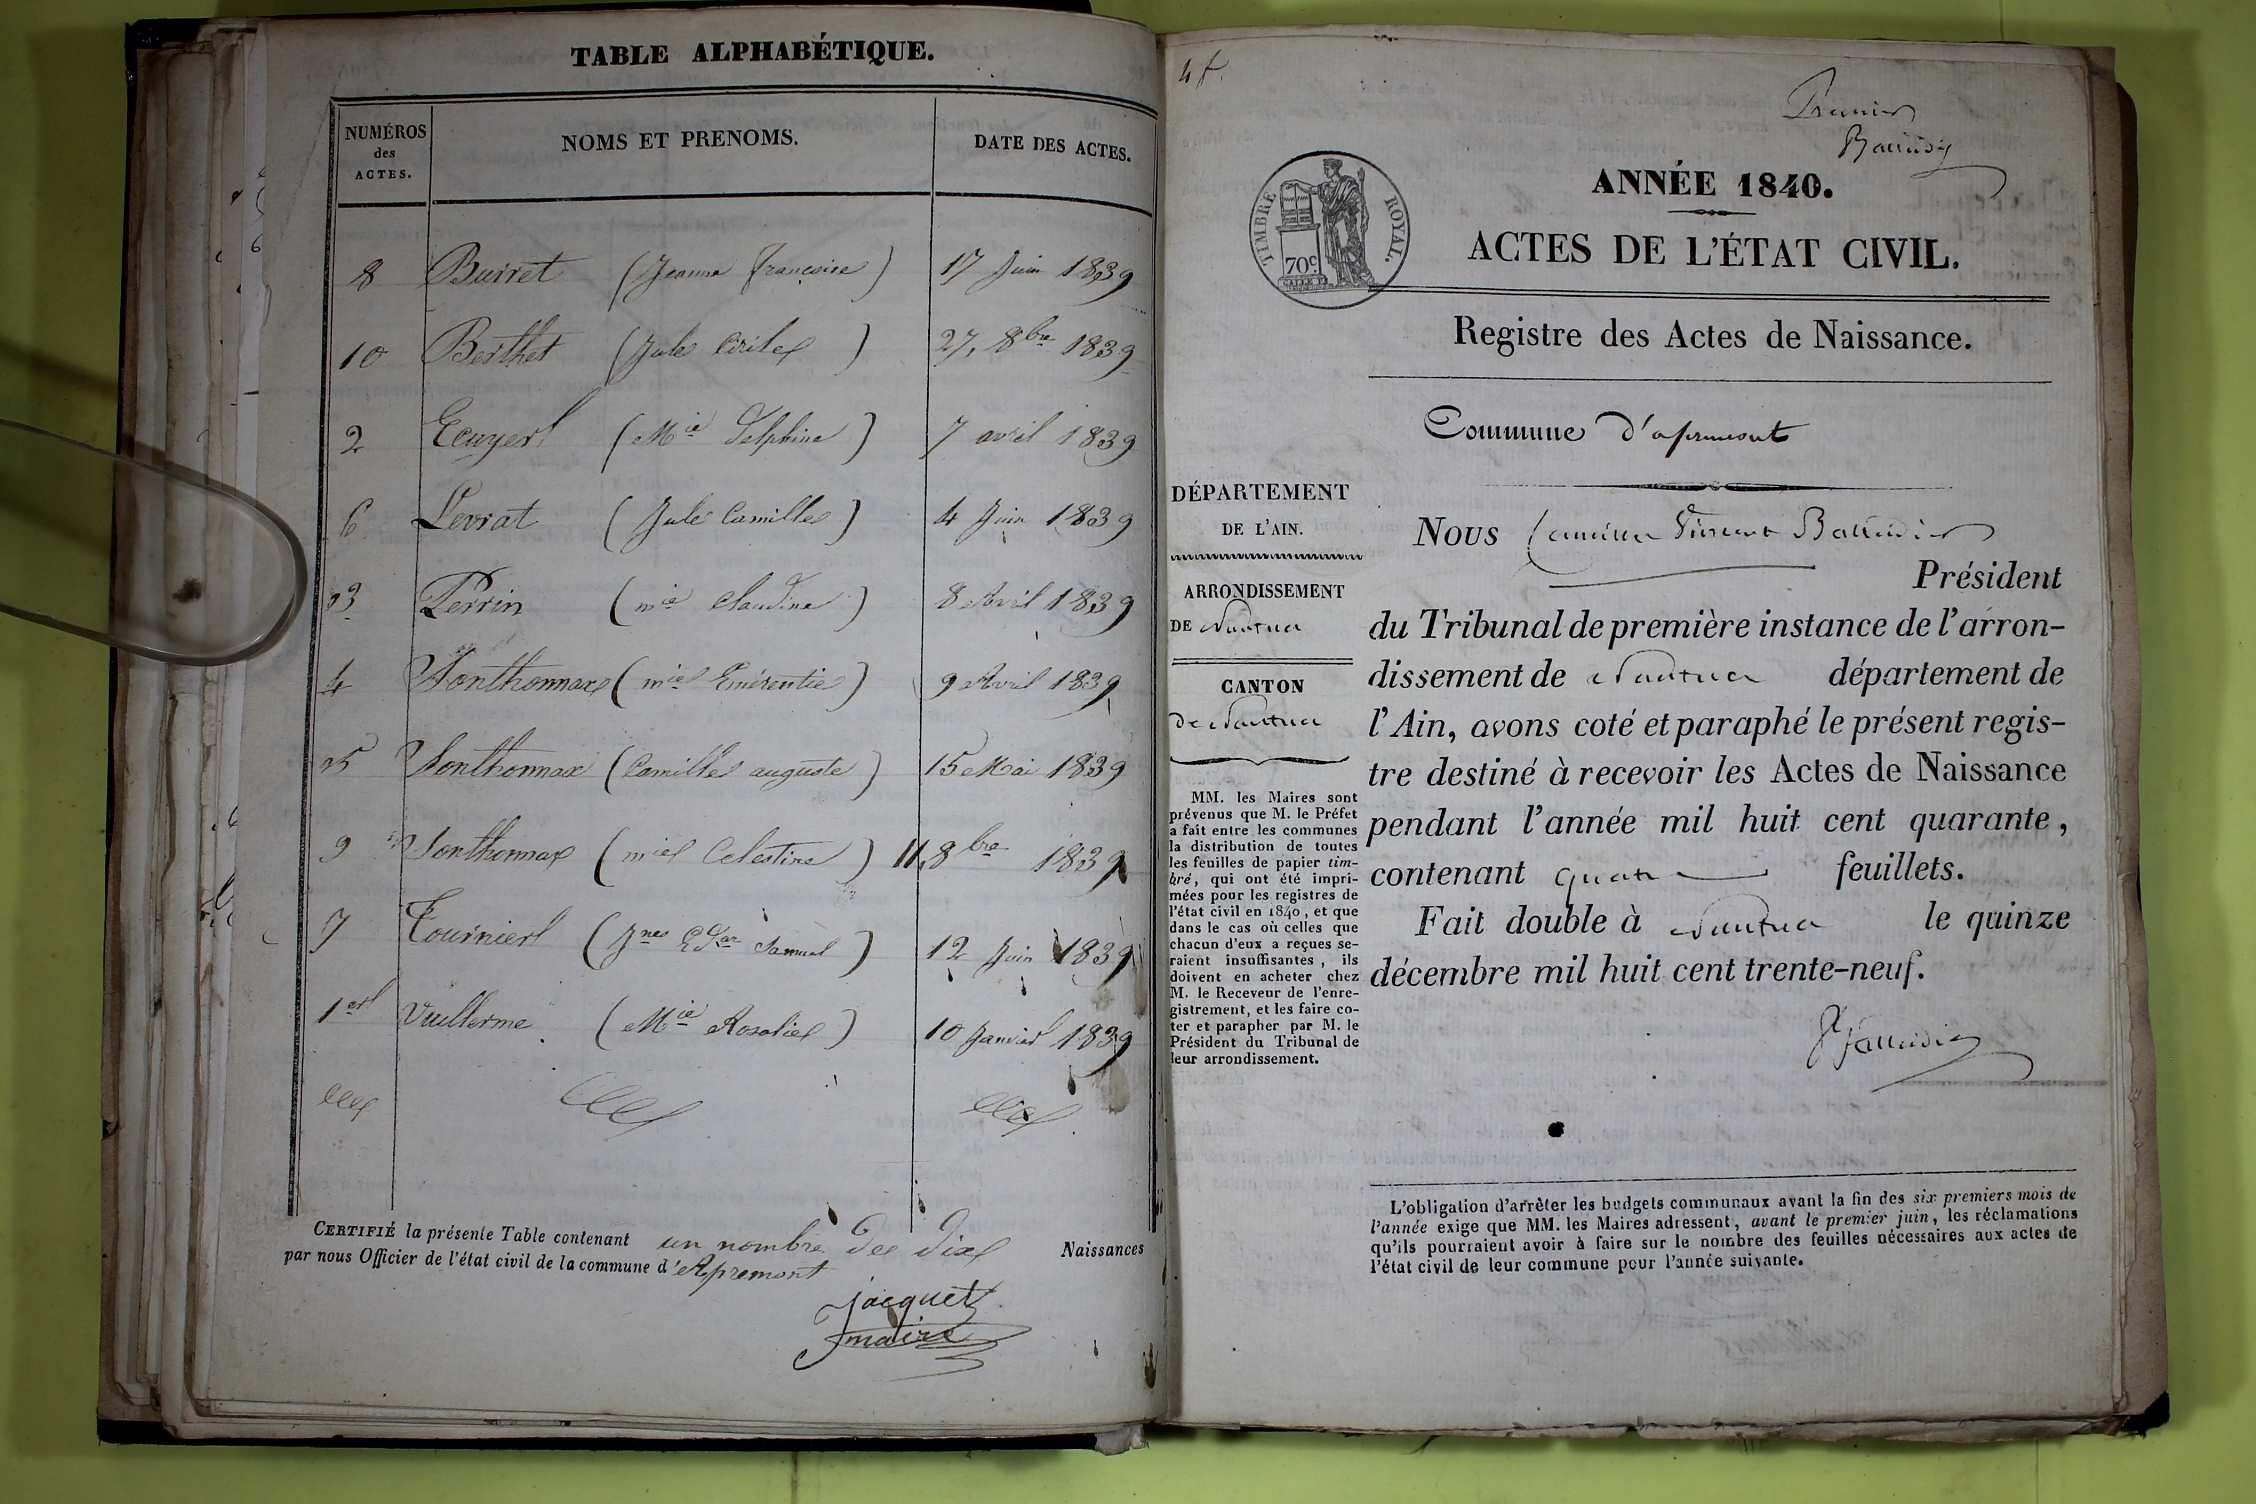 TABLE ALPHABÉTIQUE.
NUMÉROS des ACTES. NOMS ET PRENOMS. DATE DES ACTES.
8 Buiret (Jeanne françoise) 17 Juin 1839
10 Berthet (Jule Cirile) 27, 8bre 1839
2 Ecuyer (Mie Delphine) 7 avril 1839
6 Levrat (Jule Camille) 4 Juin 1839
3 Perrin (mie Claudine) 8 Avril 1839
4 Sonthonnax (mie Emérentie) 9 Avril 1839
5 Sonthonnax (Camille auguste) 15 Mai 1839
9 Sonthonnax (mie Celestine) 11, 8bre 1839
7 Tournier (Jnes Samuel) 12 Juin 1839
1er Vuillerme (Mie Rosalie) 10 Janvier 1839
CERTIFIÉ la présente Table contenant un nombre de dix Naissances
par nous Officier de l'état civil de la commune d'Apremont
Jacquet
maire
4 f.
Premier
ANNÉE 1840.
TIMBRE ROYAL.
70c.
ACTES DE L'ÉTAT CIVIL.
Registre des Actes de Naissance.
Commune d'apremont
DÉPARTEMENT
DE L'AIN.
ARRONDISSEMENT
DE Nantua
CANTON
de Nantua
MM. les Maires sont
prévenus que M. le Préfet
a fait entre les communes
la distribution de toutes
les feuilles de papier tim-
bré, qui ont été impri-
mées pour les registres de
l'état civil en 1840, et que
dans le cas où celles que
chacun d'eux a reçues se-
raient insuffisantes, ils
doivent en acheter chez
M. le Receveur de l'enre-
gistrement, et les faire co-
ter et parapher par M. le
Président du Tribunal de
leur arrondissement.
NOUS Camille Vincent
Président
du Tribunal de première instance de l'arron-
dissement de Nantua département de
l'Ain, avons coté et paraphé le présent regis-
tre destiné à recevoir les Actes de Naissance
pendant l'année mil huit cent quarante,
contenant quatre feuillets.
Fait double à Nantua le quinze
décembre mil huit cent trente-neuf.
L'obligation d'arrêter les budgets communaux avant la fin des six premiers mois de
l'année exige que MM. les Maires adressent, avant le premier juin, les réclamations
qu'ils pourraient avoir à faire sur le nombre des feuilles nécessaires aux actes de
l'état civil de leur commune pour l'année suivante.